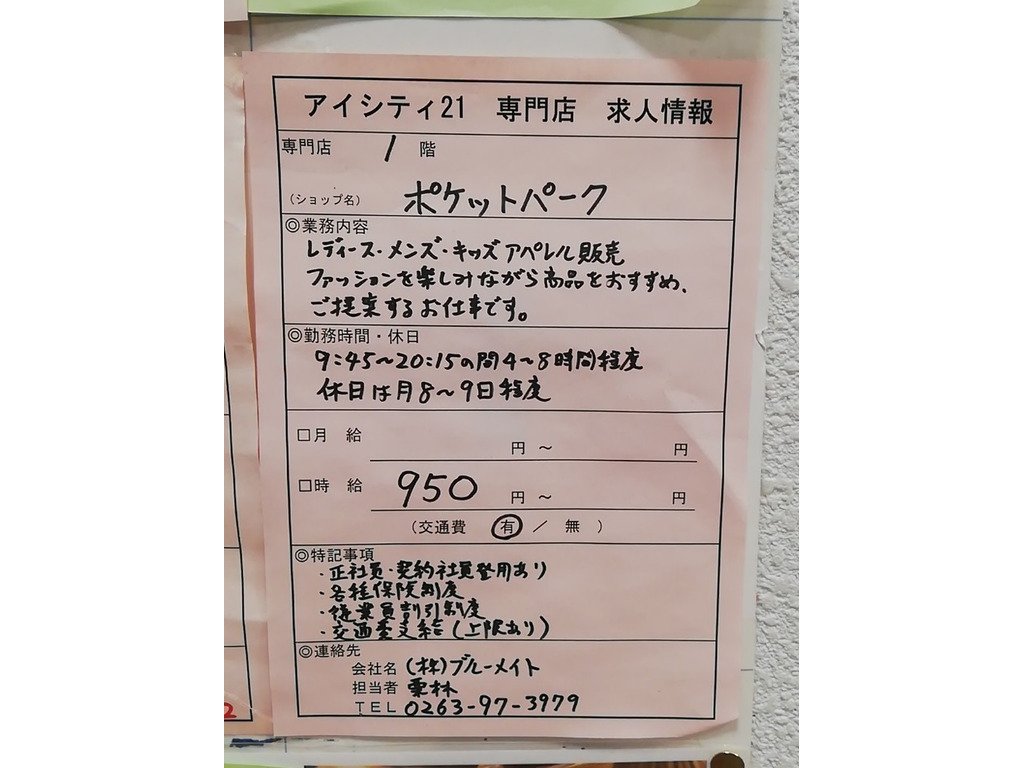 アイシティ21 専門店 求人情報
専門店 1 階
(ショップ名) ポケットパーク
◎業務内容
レディース・メンズ・キッズアパレル販売
ファッションを楽しみながら商品をおすすめ、
ご提案するお仕事です。
◎勤務時間・休日
9:45〜20:15の間4〜8時間程度
休日は月8〜9日程度
□月 給 円 〜 円
□時 給 950 円 〜 円
(交通費 有 / 無 )
◎特記事項
・正社員・契約社員登用あり
・各種保険制度
・従業員割引制度
・交通費支給(上限あり)
◎連絡先
会社名 (株)ブルーメイト
担当者 栗林
TEL 0263-97-3979
2